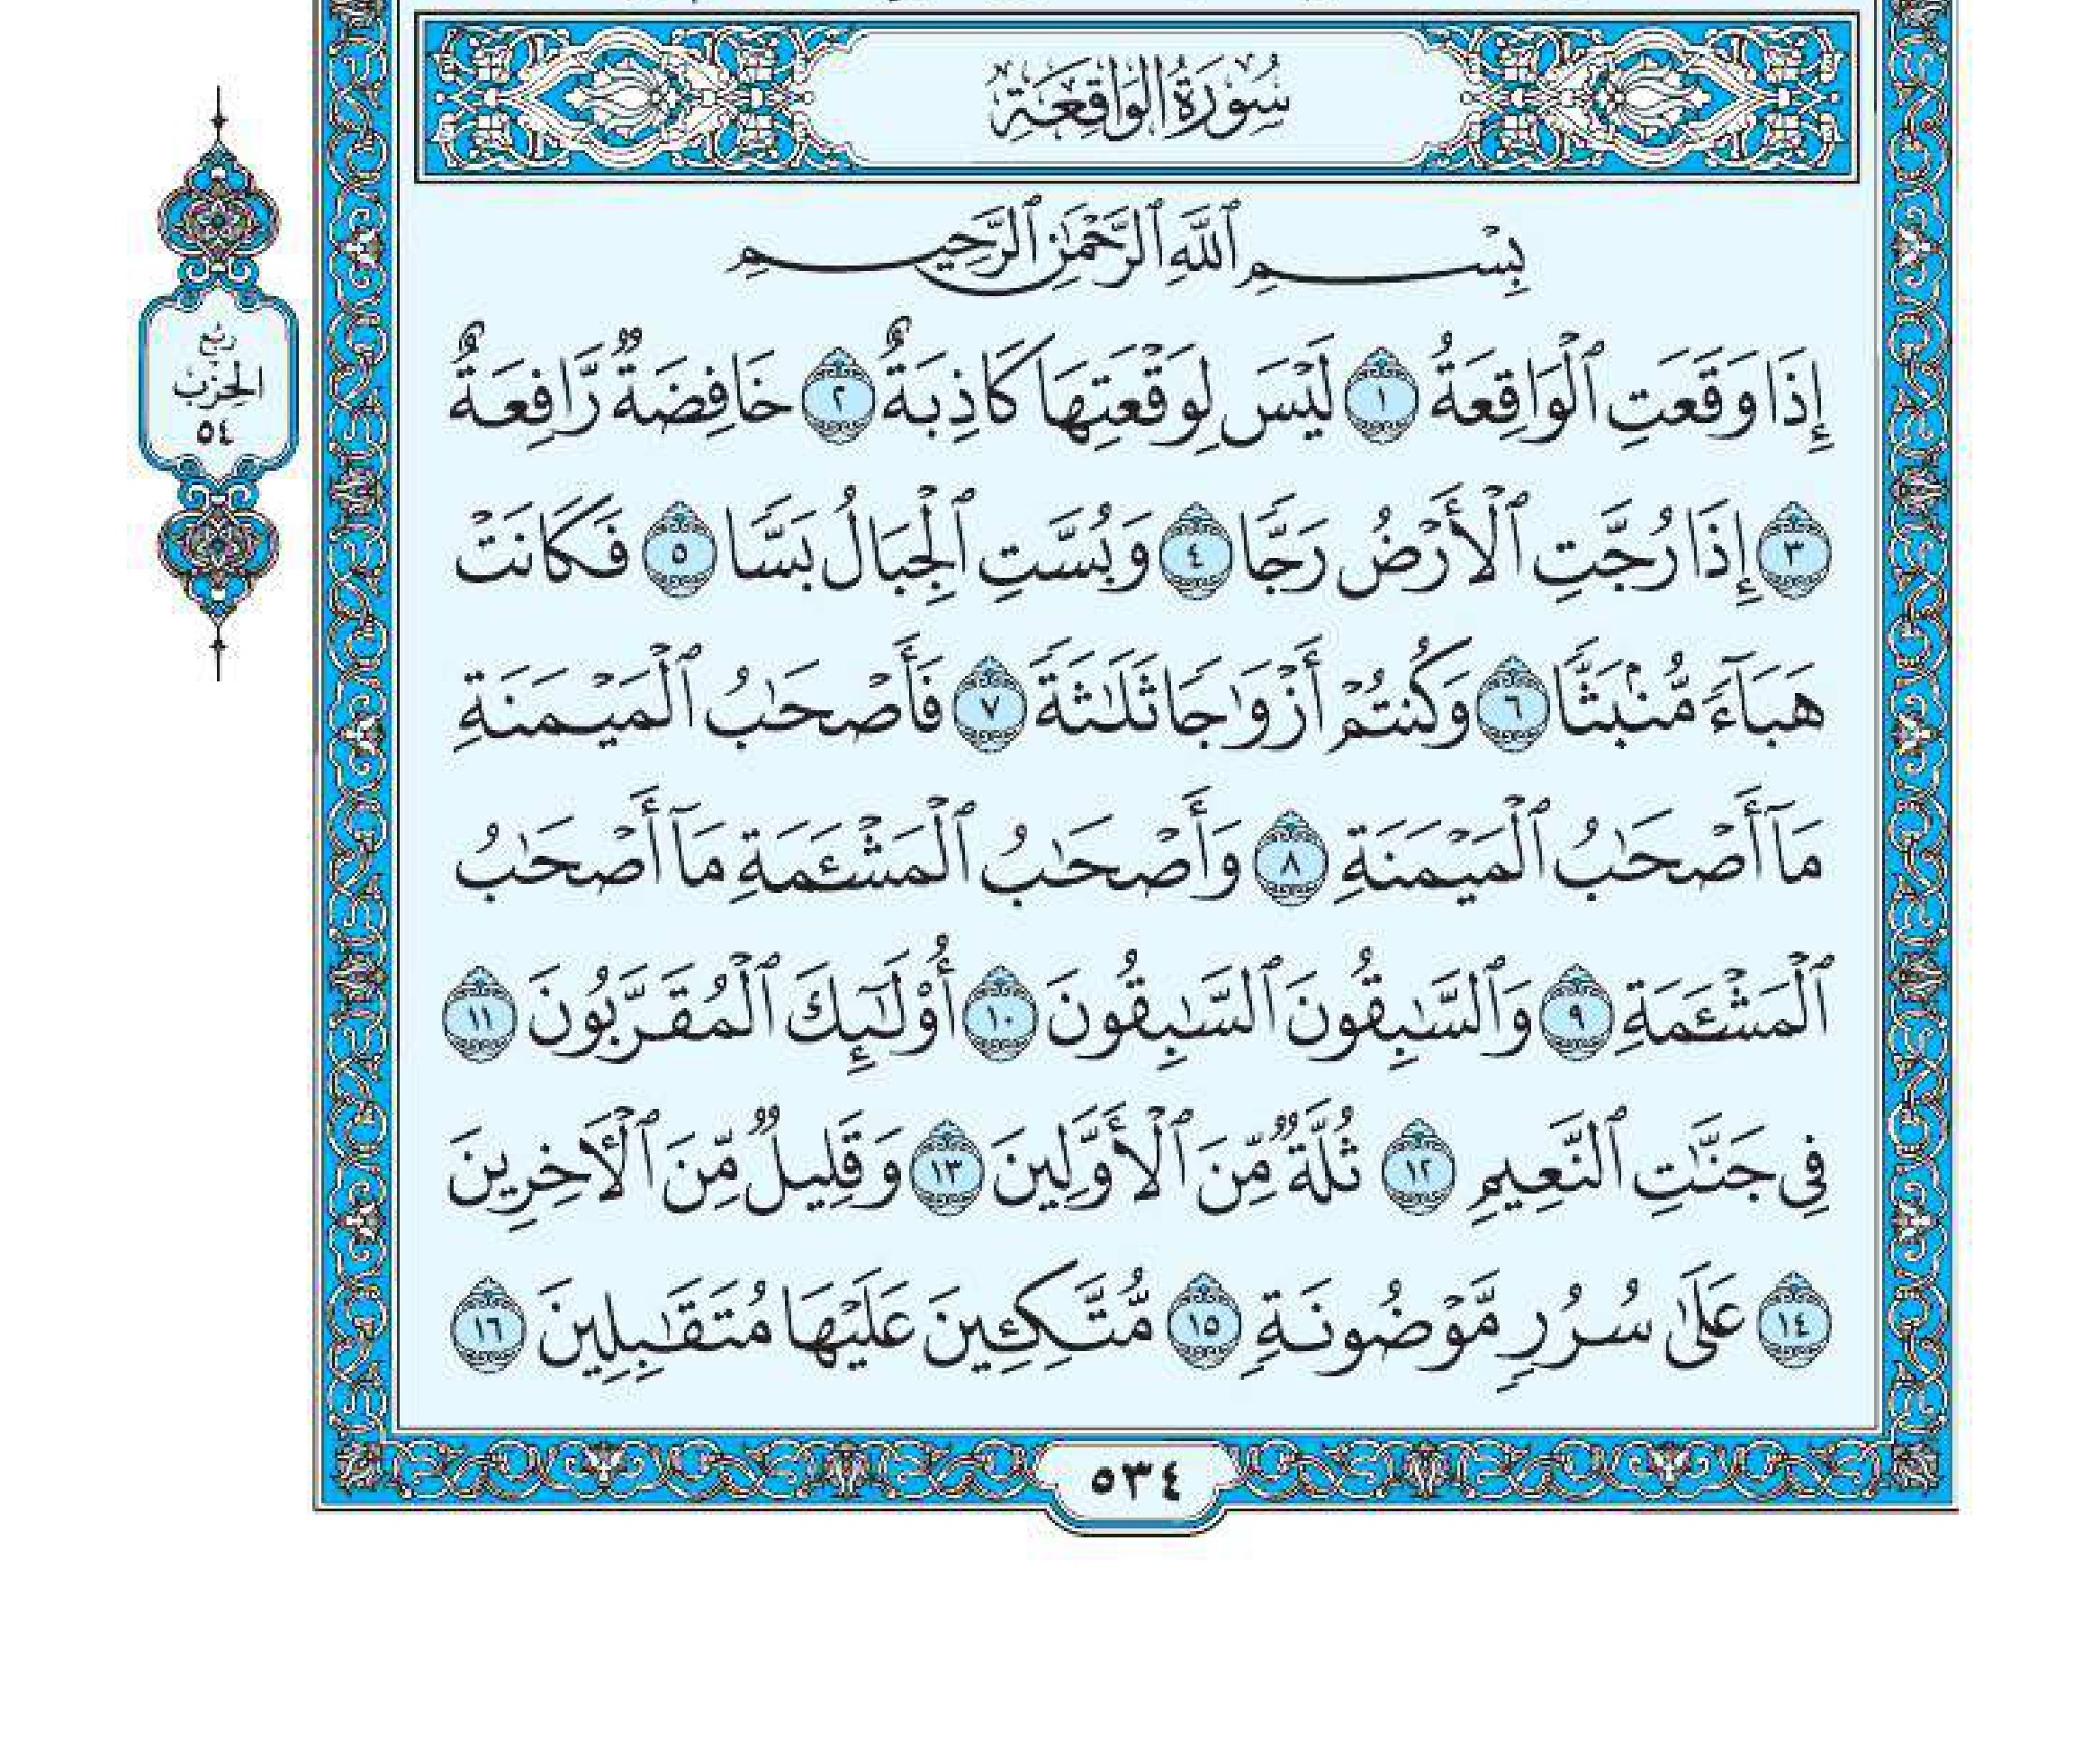 سُورَةُ الوَاقِعَةِ
بِسْمِ ٱللَّهِ ٱلرَّحْمَٰنِ ٱلرَّحِيمِ
إِذَا وَقَعَتِ ٱلْوَاقِعَةُ ١ لَيْسَ لِوَقْعَتِهَا كَاذِبَةٌ ٢ خَافِضَةٌ رَّافِعَةٌ
٣ إِذَا رُجَّتِ ٱلْأَرْضُ رَجًّا ٤ وَبُسَّتِ ٱلْجِبَالُ بَسًّا ٥ فَكَانَتْ
هَبَآءً مُّنۢبَثًّا ٦ وَكُنتُمْ أَزْوَٰجًا ثَلَٰثَةً ٧ فَأَصْحَٰبُ ٱلْمَيْمَنَةِ
مَآ أَصْحَٰبُ ٱلْمَيْمَنَةِ ٨ وَأَصْحَٰبُ ٱلْمَشْـَٔمَةِ مَآ أَصْحَٰبُ
ٱلْمَشْـَٔمَةِ ٩ وَٱلسَّٰبِقُونَ ٱلسَّٰبِقُونَ ١٠ أُو۟لَٰٓئِكَ ٱلْمُقَرَّبُونَ ١١
فِى جَنَّٰتِ ٱلنَّعِيمِ ١٢ ثُلَّةٌ مِّنَ ٱلْأَوَّلِينَ ١٣ وَقَلِيلٌ مِّنَ ٱلْـَٔاخِرِينَ
١٤ عَلَىٰ سُرُرٍ مَّوْضُونَةٍ ١٥ مُّتَّكِـِٔينَ عَلَيْهَا مُتَقَٰبِلِينَ ١٦
ربع
الحزب
٥٤
٥٣٤